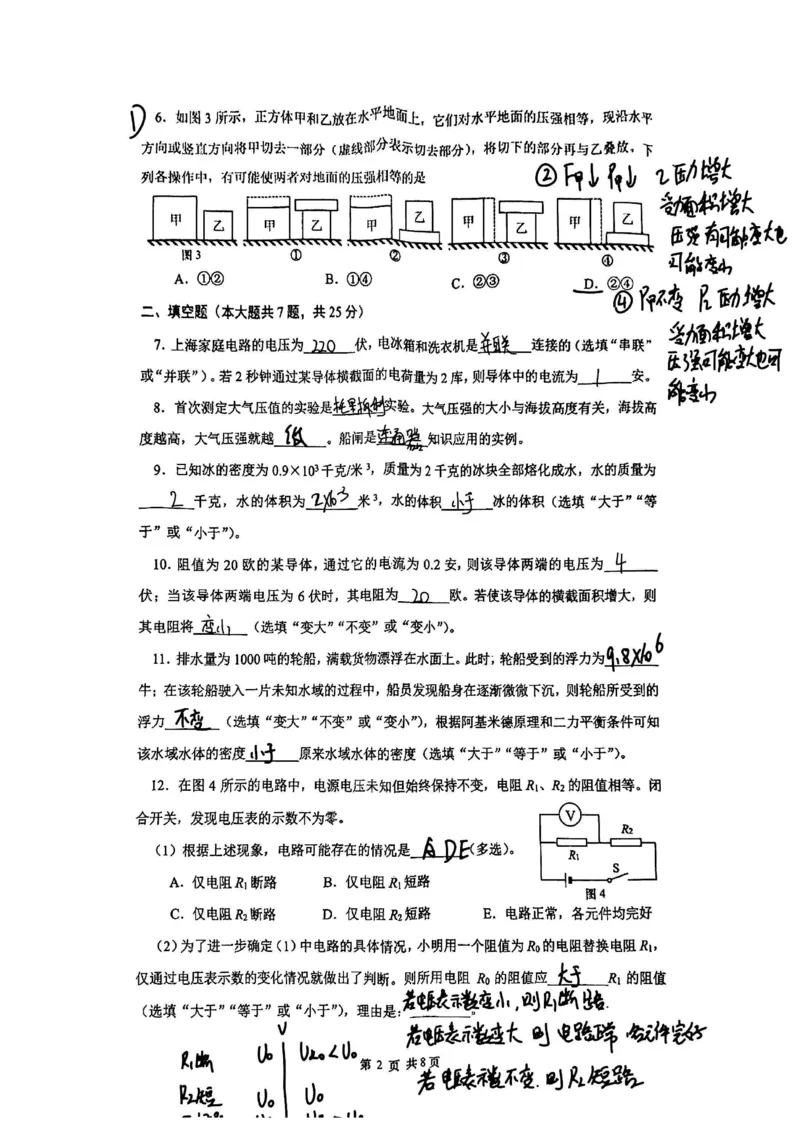 D 6．如图 3 所示，正方体甲和乙放在水平地面上，它们对水平地面的压强相等，现沿水平
方向或竖直方向将甲切去一部分（虚线部分表示切去部分），将切下的部分再与乙叠放，下
列各操作中，有可能使两者对地面的压强相等的是
② F甲↓ P甲↓ 乙压力增大
受力面积增大
压强有可能变大也
可能变小
甲 乙 甲 乙 甲 乙 甲 乙 甲 乙
图 3 ① ② ③ ④
A．①② B．①④ C．②③ D．②④
④ P甲不变 P乙 压力增大
受力面积增大
压强可能变大也可
能变小
二、填空题（本大题共 7 题，共 25 分）
7．上海家庭电路的电压为 220 伏，电冰箱和洗衣机是 并联 连接的（选填“串联”
或“并联”）。若 2 秒钟通过某导体横截面的电荷量为 2 库，则导体中的电流为 1 安。
8．首次测定大气压值的实验是 托里拆利 实验。大气压强的大小与海拔高度有关，海拔高
度越高，大气压强就越 低 。船闸是 连通器 知识应用的实例。
9．已知冰的密度为 0.9×10³千克/米³，质量为 2 千克的冰块全部熔化成水，水的质量为
2 千克，水的体积为 2×10⁻³ 米³，水的体积 小于 冰的体积（选填“大于”“等
于”或“小于”）。
10．阻值为 20 欧的某导体，通过它的电流为 0.2 安，则该导体两端的电压为 4
伏；当该导体两端电压为 6 伏时，其电阻为 20 欧。若使该导体的横截面积增大，则
其电阻将 变小 （选填“变大”“不变”或“变小”）。
11．排水量为 1000 吨的轮船，满载货物漂浮在水面上。此时，轮船受到的浮力为 9.8×10⁶
牛；在该轮船驶入一片未知水域的过程中，船员发现船身在逐渐微微下沉，则轮船所受到的
浮力 不变 （选填“变大”“不变”或“变小”），根据阿基米德原理和二力平衡条件可知
该水域水体的密度 小于 原来水域水体的密度（选填“大于”“等于”或“小于”）。
12．在图 4 所示的电路中，电源电压未知但始终保持不变，电阻 R₁、R₂ 的阻值相等。闭
合开关，发现电压表的示数不为零。
V R₂ R₁ S
图 4
（1）根据上述现象，电路可能存在的情况是 A DE （多选）。
A．仅电阻 R₁ 断路 B．仅电阻 R₁ 短路
C．仅电阻 R₂ 断路 D．仅电阻 R₂ 短路 E．电路正常，各元件均完好
（2）为了进一步确定（1）中电路的具体情况，小明用一个阻值为 R₀ 的电阻替换电阻 R₁，
仅通过电压表示数的变化情况就做出了判断。则所用电阻 R₀ 的阻值应 大于 R₁ 的阻值
（选填“大于”“等于”或“小于”），理由是： 若电压表示数变小，则R₁断路.
若电压表示数变大 则 电路正常 各元件完好
若电压表示数不变. 则R₂短路
V
R₁断 U₀ U₂₀<U₀
第 2 页 共 8 页
R₂短 U₀ U₀